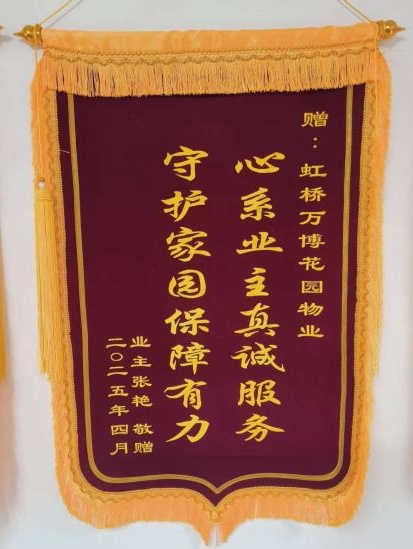 赠：虹桥万博花园物业
心系业主真诚服务
守护家园保障有力
业主张艳 敬赠
二〇二五年四月